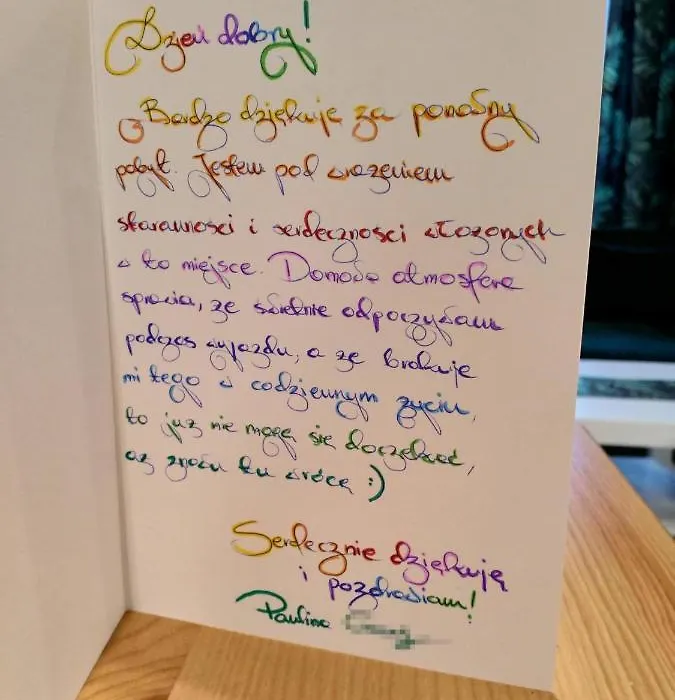 Dzień dobry!
Bardzo dziękuję za ponowny
pobyt. Jestem pod wrażeniem
staranności i serdeczności włożonych
w to miejsce. Domowa atmosfera
sprawia, że świetnie odpoczywam
podczas wyjazdu, a że brakuje
mi tego w codziennym życiu,
to już nie mogę się doczekać,
aż znów tu wrócę :)
Serdecznie dziękuję
i pozdrawiam!
Paulina